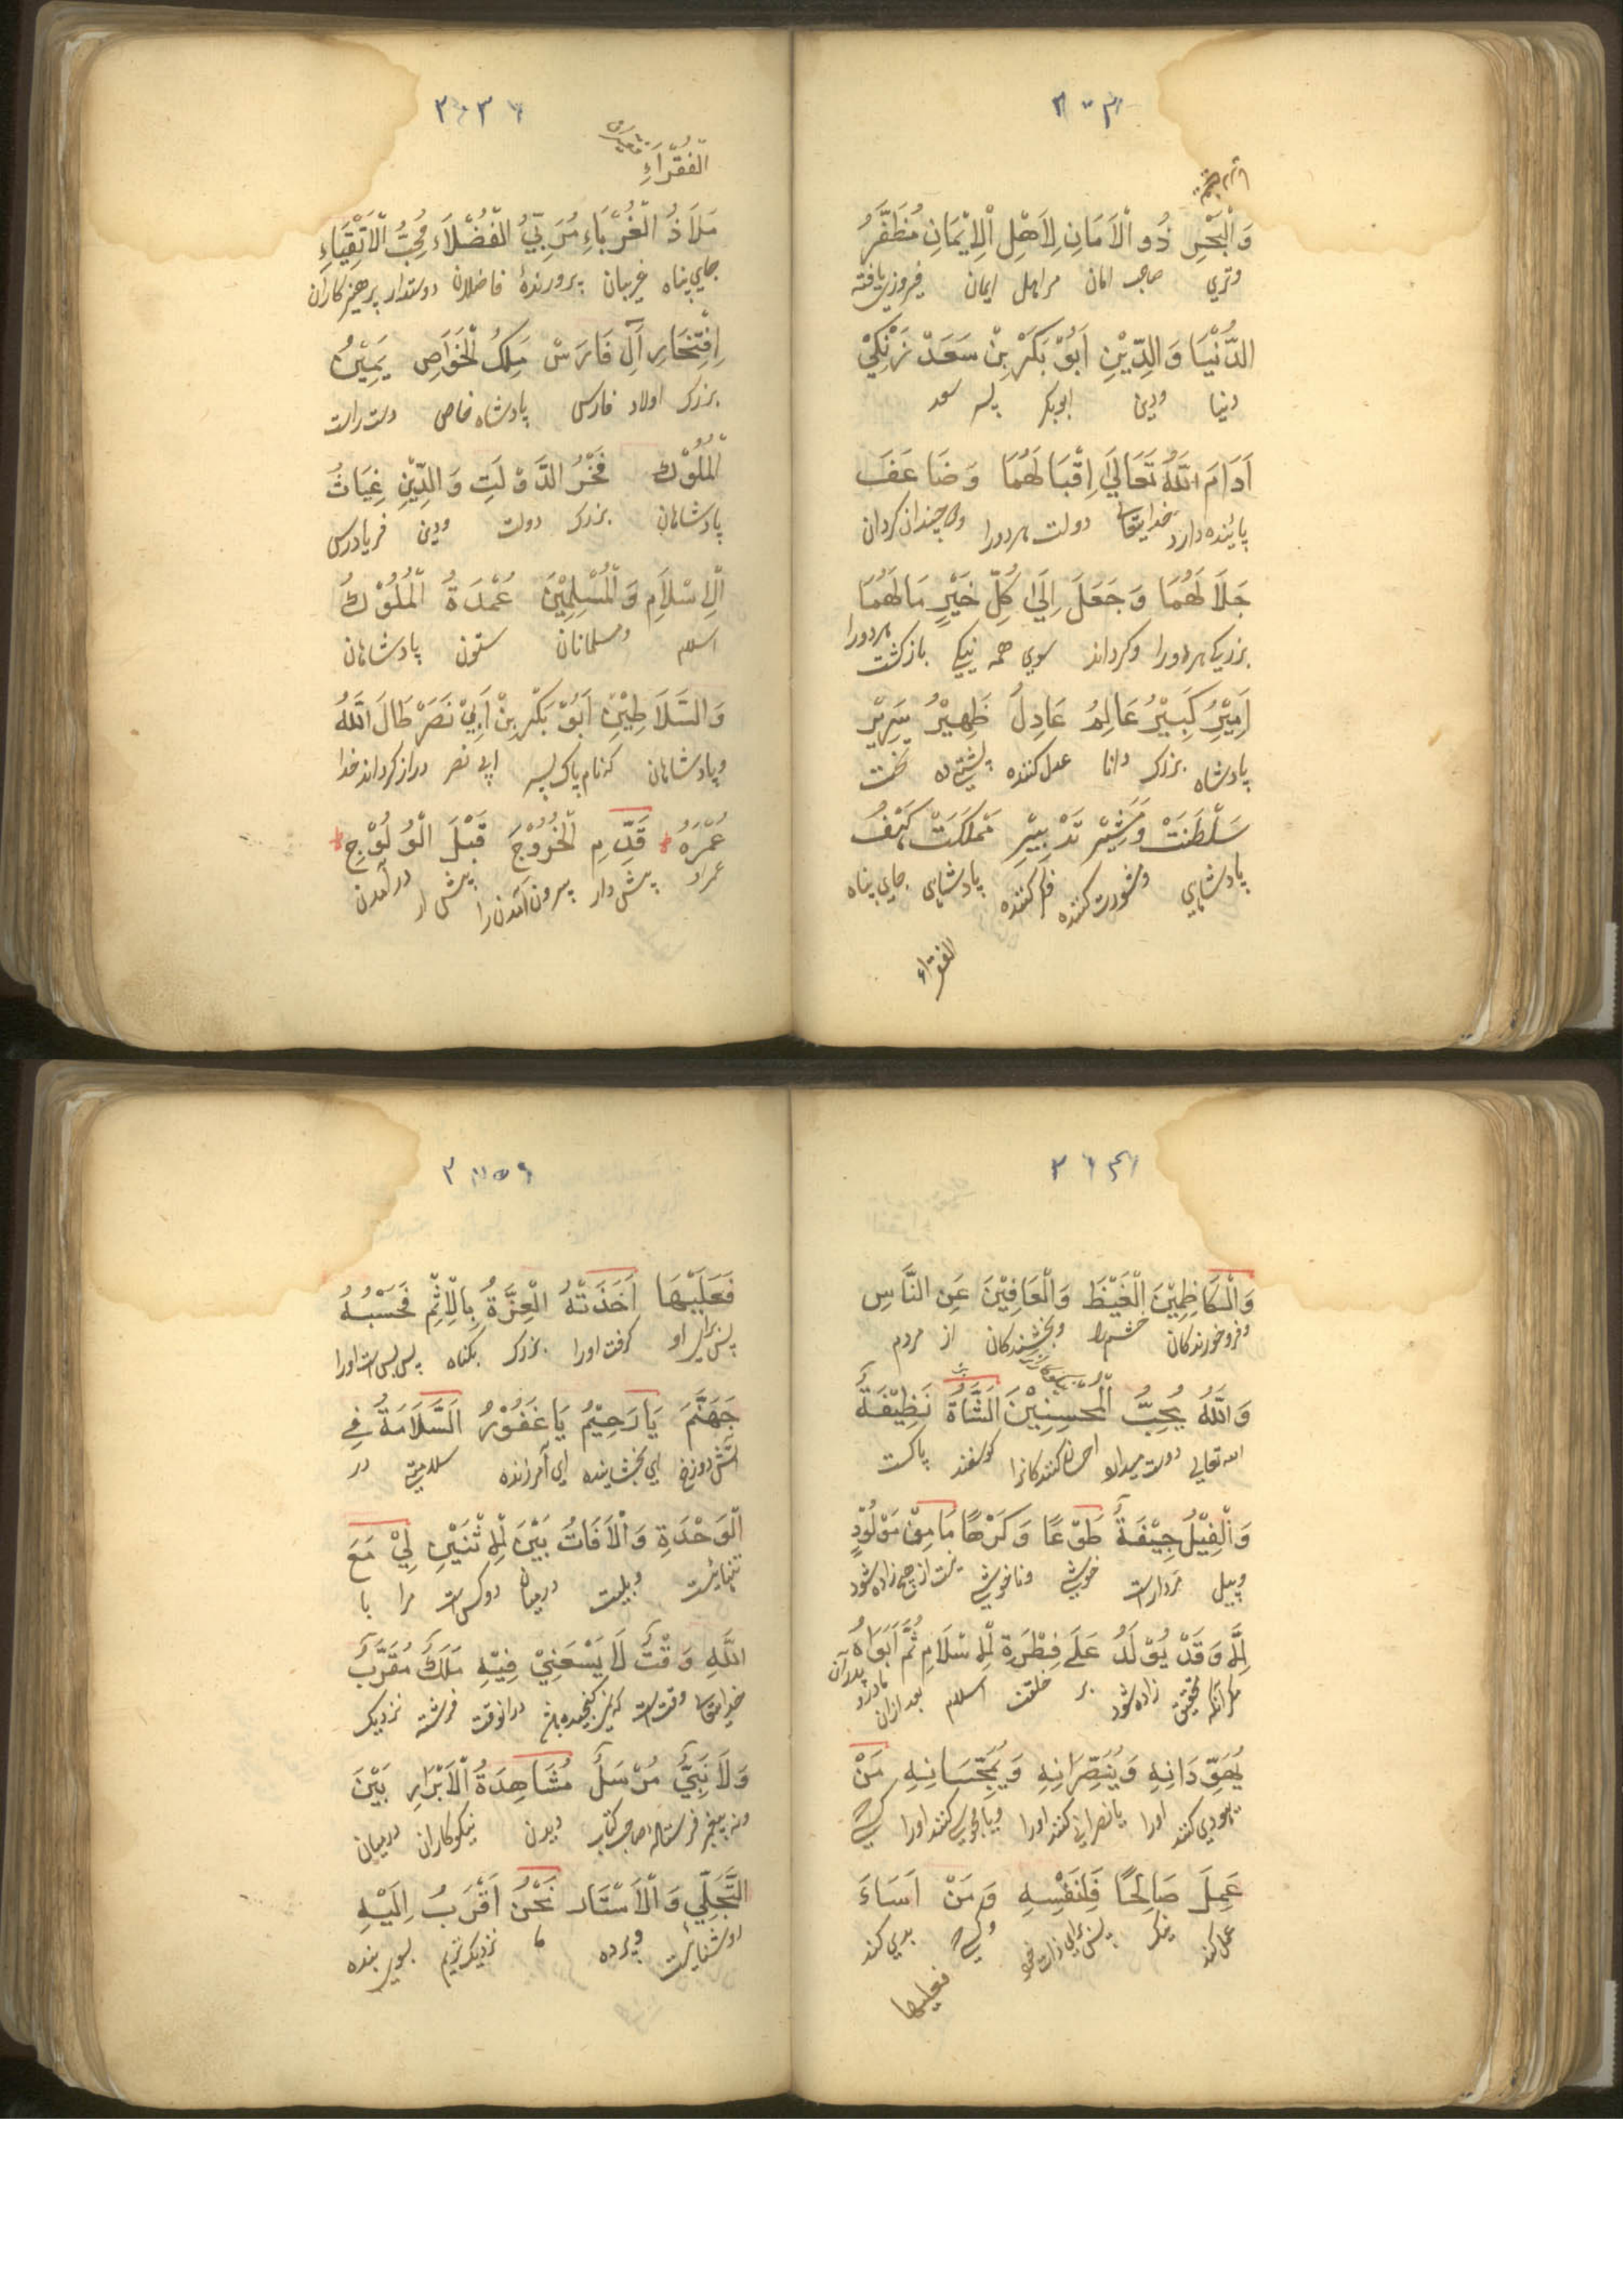 وَالْبَحْرِ ذُو الْاَمَانِ لِاَهْلِ الْاِيْمَانِ مُظَفَّرُ
وتري صاحب امان مراهل ايمان فيروزي يافته
الدُّنْيَا وَالدِّيْنِ اَبُوْ بَكَرْ بِنْ سَعَدْ زَنْكِيْ
دنيا ودين ابوبكر پسر سعد
اَدَامَ اللّٰهُ تَعَالٰي اِقْبَالَهُمَا وَضَاعَفَ
پاينده دارد خدايتعالي دولت هردورا چندان كردان
جَلَالَهُمَا وَجَعَلَ اِلٰي كُلِّ خَيْرٍ مَالَهُمَا
بزركي هردورا وكرداند سوي همه نيكي بازكشت هردورا
اَمِيْرُ كَبِيْرُ عَالِمُ عَادِلُ ظَهِيْرُ سَرِيْرِ
پادشاه بزرك دانا عدل كننده پشتي ده تخت
سَلْطَنَتْ وَمُشِيْرُ تَدْبِيْرِ مَمْلَكَتْ كَهْفُ
پادشاهي ومشورت كننده فكر كننده پادشاهي جاي پناه
الفقراء
الْفُقَرَاءِ
مَلَاذُ الْغُرَبَاءِ مُرَبِّيُ الْفُضَلَاءِ مُحِبُّ الْاَتْقِيَاءِ
جاي پناه غريبان پرورنده فاضلان دوستدار پرهيزكاران
اِفْتِخَارِ آلِ فَارَسْ مَلِكُ الْخَوَاصِ يَمِيْنُ
بزرك اولاد فارس پادشاه خاص دست راست
الْمُلُوْكِ فَخْرُ الدَّوْلَتِ وَالدِّيْنِ غِيَاثُ
پادشاهان بزرك دولت ودين فريادرس
الْاِسْلَامِ وَالْمُسْلِمِيْنَ عُمْدَةُ الْمُلُوْكِ
اسلام ومسلمانان ستون پادشاهان
وَالسَّلَاطِيْنِ اَبُوْ بَكْرِ بِنْ اَبِيْ نَصَرْ طَالَ اللّٰهُ
وپادشاهان كه نام پاك پسر ابي نصر دراز كرداند خدا
عُمْرَهُ قَدِّمِ الْخُرُوْجَ قَبْلَ الْوُلُوْجِ
عمر او پيش دار بيرون آمدن را پيش از درآمدن
وَالْكَاظِمِيْنَ الْغَيْظَ وَالْعَافِيْنَ عَنِ النَّاسِ
وفروخورندكان خشم را وبخشندكان از مردم
وَاللّٰهُ يُحِبُّ الْمُحْسِنِيْنَ الشَّاةُ نَظِيْفَةٌ
الله تعالي دوست ميدارد احسان كنندكانرا كوسفند پاكست
وَالْفِيْلُ جِيْفَةٌ طَوْعًا وَكَرْهًا مَامِنْ مَوْلُوْدٍ
وپيل مردارست خوشي وناخوشي نيست از هيچ زاده شود
اِلَّا وَقَدْ يُوْلَدُ عَلٰى فِطْرَةِ الْاِسْلَامِ ثُمَّ اَبَوَاهُ
مكر آنكه تحقيق زاده شود بر خلقت اسلام بعد ازان مادر پدر آن
يُهَوِّدَانِهِ وَيُنَصِّرَانِهِ وَيُمَجِّسَانِهِ مَنْ
يهودي كنند اورا يا نصراني كنند اورا ويا مجوسي كنند اورا كسي كه
عَمِلَ صَالِحًا فَلِنَفْسِهِ وَمَنْ اَسَاءَ
عمل كند نيك پس براي ذات خود وكسي كه بدي كند
فعليها
فَعَلَيْهَا اَخَذَتْهُ الْعِزَّةُ بِالْاِثْمِ فَحَسْبُهُ
پس براو كرفت اورا بزرك بكناه پس بس است اورا
جَهَنَّمَ يَا رَحِيْمُ يَا غَفُوْرُ اَلسَّلَامَةُ فِي
آتش دوزخ اي بخشاينده اي آمرزنده سلامتي در
الْوَحْدَةِ وَالْاٰفَاتُ بَيْنَ الْاِثْنَيْنِ لِيْ مَعَ
تنهائيست وبليت درميان دوكس است مرا با
اللّٰهِ وَقْتٌ لَا يَسْعَنِيْ فِيْهِ مَلَكٌ مُقَرَّبٌ
خدايتعالي وقت است درانوقت فرشته نزديك
وَلَا نَبِيٌّ مُرْسَلٌ مُشَاهَدَةُ الْاَبْرَارِ بَيْنَ
ونه پيغمبر فرستاده صاحب كتاب ديدن نيكوكاران درميان
التَّجَلِّيْ وَالْاَسْتَار نَحْنُ اَقْرَبُ اِلَيْهِ
روشنائيست وپرده ما نزديكتريم بسوي بنده